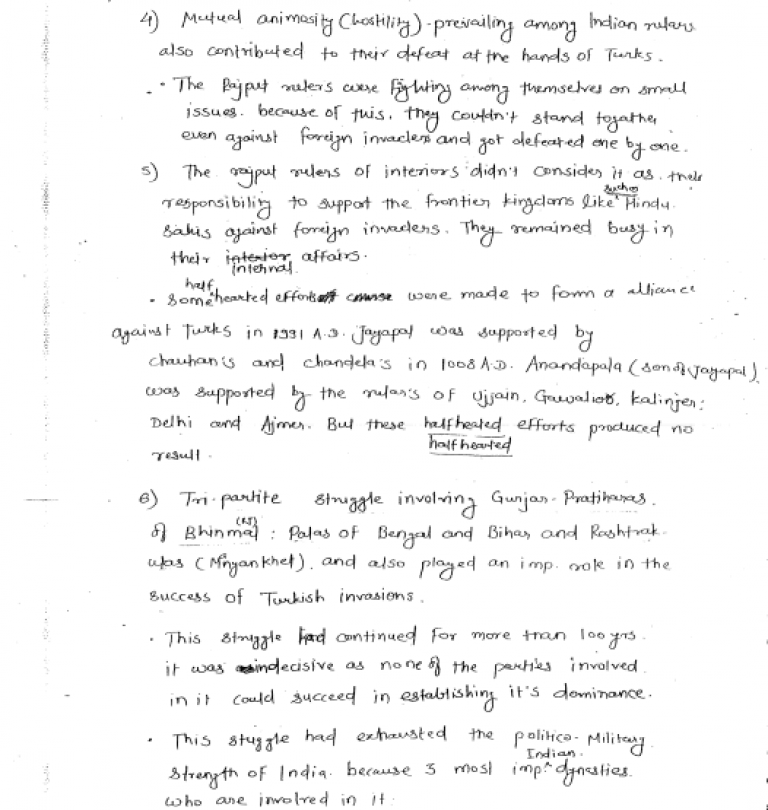 4) Mutual animosity (hostility) - prevailing among Indian rulers
also contributed to their defeat at the hands of Turks.
• The Rajput rulers were fighting among themselves on small
issues. because of this, they couldn't stand togather
even against foreign invaders and got defeated one by one.
5) The rajput rulers of interiors didn't consider it as their
responsibility to support the frontier kingdoms like such as Hindu
Sahis against foreign invaders. They remained busy in
their interior internal affairs.
• Some half hearted efforts were made to form a alliance
against Turks in 1991 A.D. Jayapal was supported by
chauhan's and chandela's in 1008 A.D. Anandapala (son of Jayapal)
was supported by the rular's of Ujjain, Gawalior, Kalinjer;
Delhi and Ajmer. But these halfheated efforts produced no
halfhearted
result.
6) Tri-partite struggle involving Gurjar-Pratiharas
of Bhinmal (RJ) : Palas of Bengal and Bihar and Rashtrak-
utas (Manyankhet). and also played an imp. role in the
success of Turkish invasions.
• This struggle had continued for more than 100 yrs.
it was indecisive as none of the parties involved
in it could succeed in establishing it's dominance.
• This stuggle had exhausted the politico-Military
strength of India. because 3 most imp. Indian dynesties
who are involved in it: